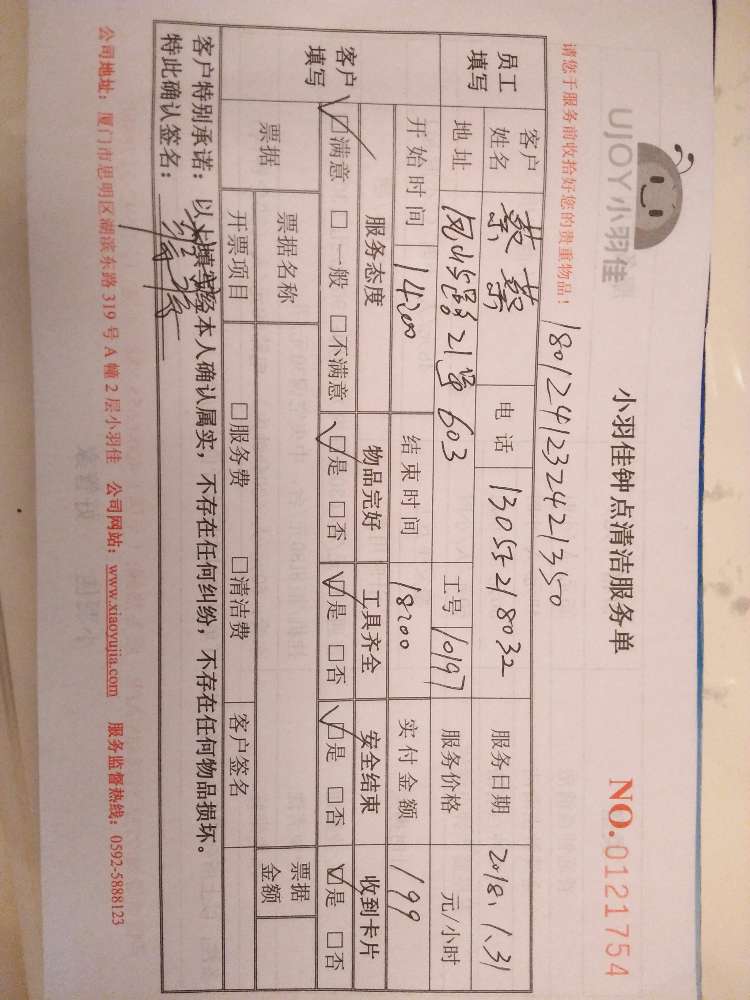 UJOY小羽佳
小羽佳钟点清洁服务单
NO.0121754
请您于服务前收拾好您的贵重物品！
1801241232421350
员工填写 客户姓名 蔡 电话 13055218032 服务日期 2018.1.31
地址 凤屿路21号603 工号 10197 服务价格 元/小时
开始时间 14:00 结束时间 18:00 实付金额 199
客户填写 服务态度 物品完好 工具齐全 安全结束 收到卡片
☑满意 □一般 □不满意 ☑是 □否 ☑是 □否 ☑是 □否 ☑是 □否
票据 票据名称 票据金额
开票项目 □服务费 □清洁费 客户签名
客户特别承诺：以上填写经本人确认属实，不存在任何纠纷，不存在任何物品损坏。
特此确认签名：
公司地址：厦门市思明区湖滨东路319号A幢2层小羽佳 公司网站：www.xiaoyujia.com 服务监督热线：0592-5888123